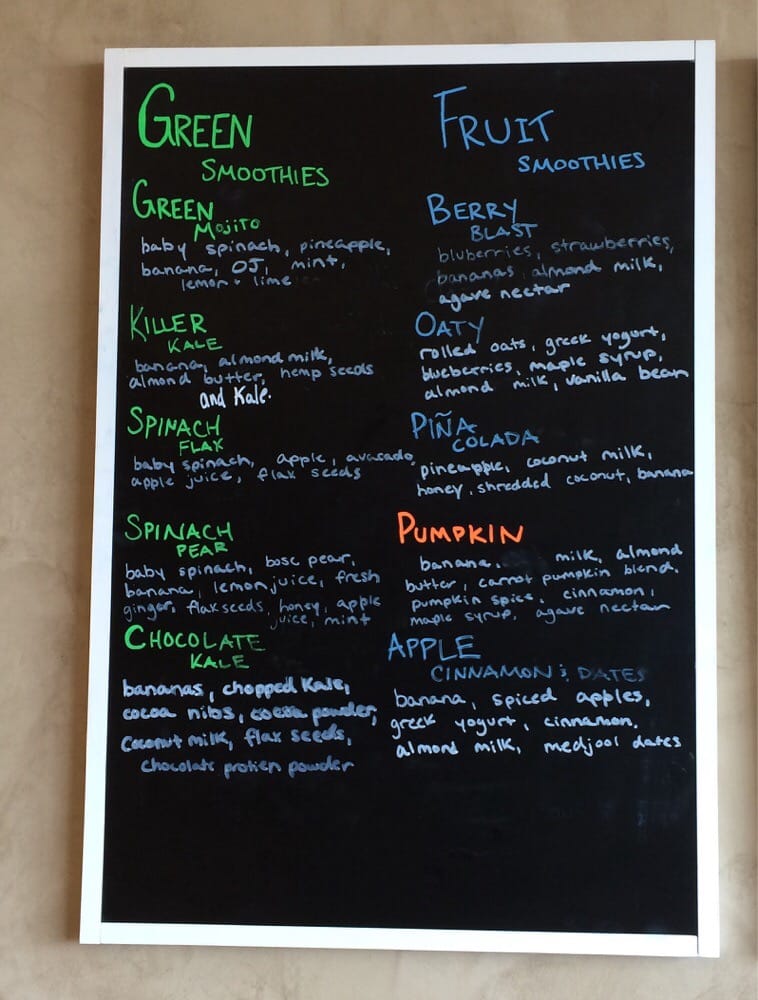 GREEN
SMOOTHIES
GREEN
MOJITO
baby spinach, pineapple,
banana, OJ, mint,
lemon + lime
KILLER
KALE
banana, almond milk,
almond butter, hemp seeds
and Kale.
SPINACH
FLAX
baby spinach, apple, avacado,
apple juice, flax seeds
SPINACH
PEAR
baby spinach, bosc pear,
banana, lemon juice, fresh
ginger, flaxseeds, honey, apple
juice, mint
CHOCOLATE
KALE
bananas, chopped Kale,
cocoa nibs, cocoa powder,
Coconut milk, flax seeds,
chocolate protien powder
FRUIT
SMOOTHIES
BERRY
BLAST
bluberries, strawberries,
bananas, almond milk,
agave nectar
OATY
rolled oats, greek yogurt,
blueberries, maple syrup,
almond milk, vanilla bean
PIÑA
COLADA
pineapple, coconut milk,
honey, shredded coconut, banana
PUMPKIN
banana, milk, almond
butter, carrot pumpkin blend,
pumpkin spice, cinnamon,
maple syrup, agave nectar
APPLE
CINNAMON & DATES
banana, spiced apples,
greek yogurt, cinnamon,
almond milk, medjool dates